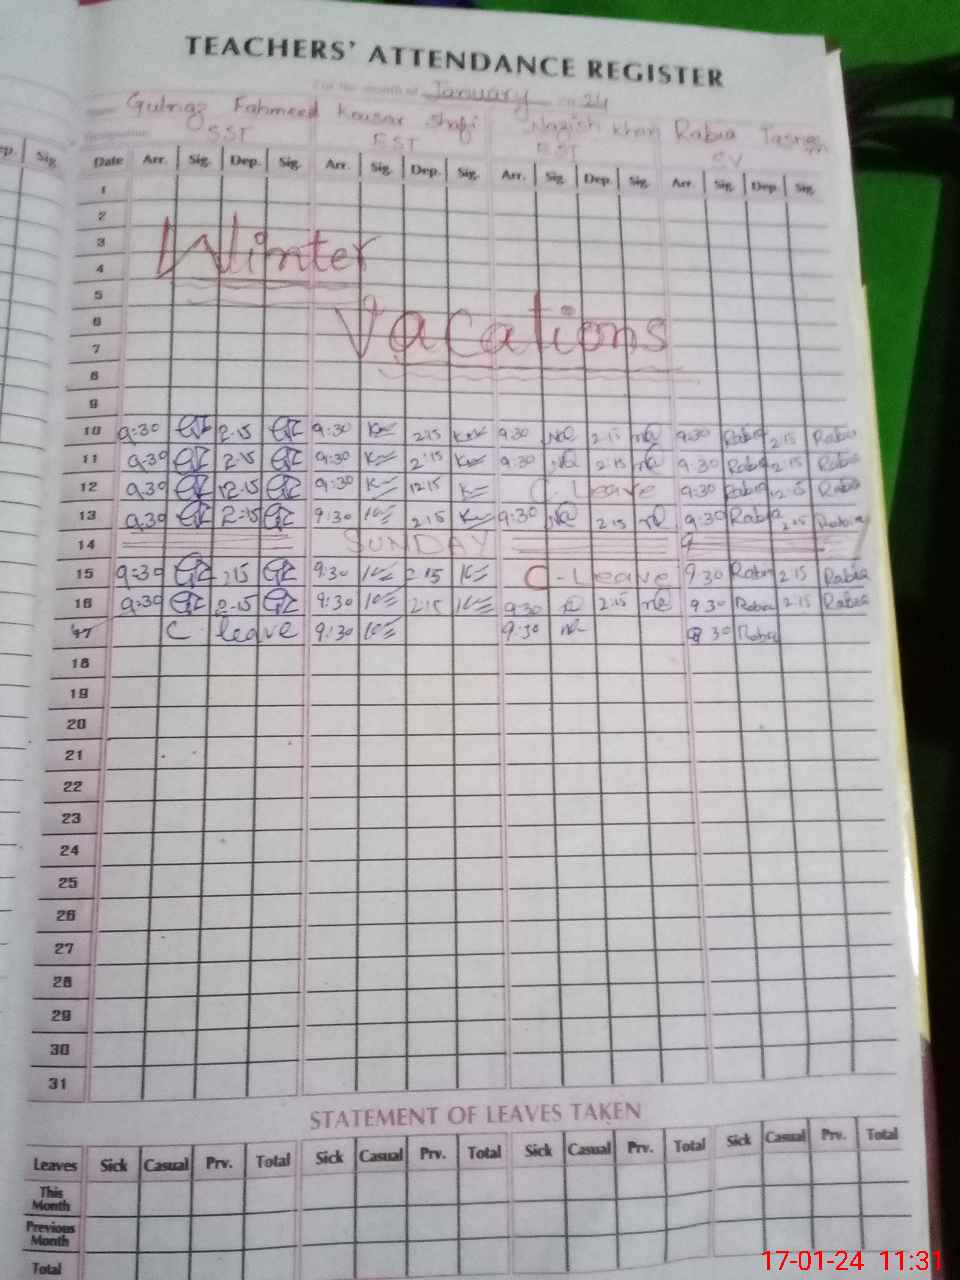 TEACHERS' ATTENDANCE REGISTER
For the month of January 24
Gulnaz Fahmeed Kousar Shafi Nazish Khan Rabia Tasneem
SST EST EST CV
ep. Sig. Date Arr. Sig. Dep. Sig. Arr. Sig. Dep. Sig. Arr. Sig. Dep. Sig. Arr. Sig. Dep. Sig.
1
2
3 Winter
4
5
6 Vacations
7
8
9
10 9:30 2.15 9:30 2:15 9:30 2:15 9:30 Rabia 2:15 Rabia
11 9:30 2:15 9:30 2:15 9:30 2:15 9:30 Rabia 2:15 Rabia
12 9:30 12:15 9:30 12:15 C. Leave 9:30 Rabia 12:15 Rabia
13 9:30 2:15 9:30 2:15 9:30 2:15 9:30 Rabia 2:15 Rabia
14 SUNDAY
15 9:30 2:15 9:30 2:15 C - Leave 9:30 Rabia 2:15 Rabia
16 9:30 2:15 9:30 2:15 9:30 2:15 9:30 Rabia 2:15 Rabia
17 C. leave 9:30 9:30 9:30 Rabia
18
19
20
21
22
23
24
25
26
27
28
29
30
31
STATEMENT OF LEAVES TAKEN
Leaves Sick Casual Prv. Total Sick Casual Prv. Total Sick Casual Prv. Total Sick Casual Prv. Total
This Month
Previous Month
Total
17-01-24 11:31